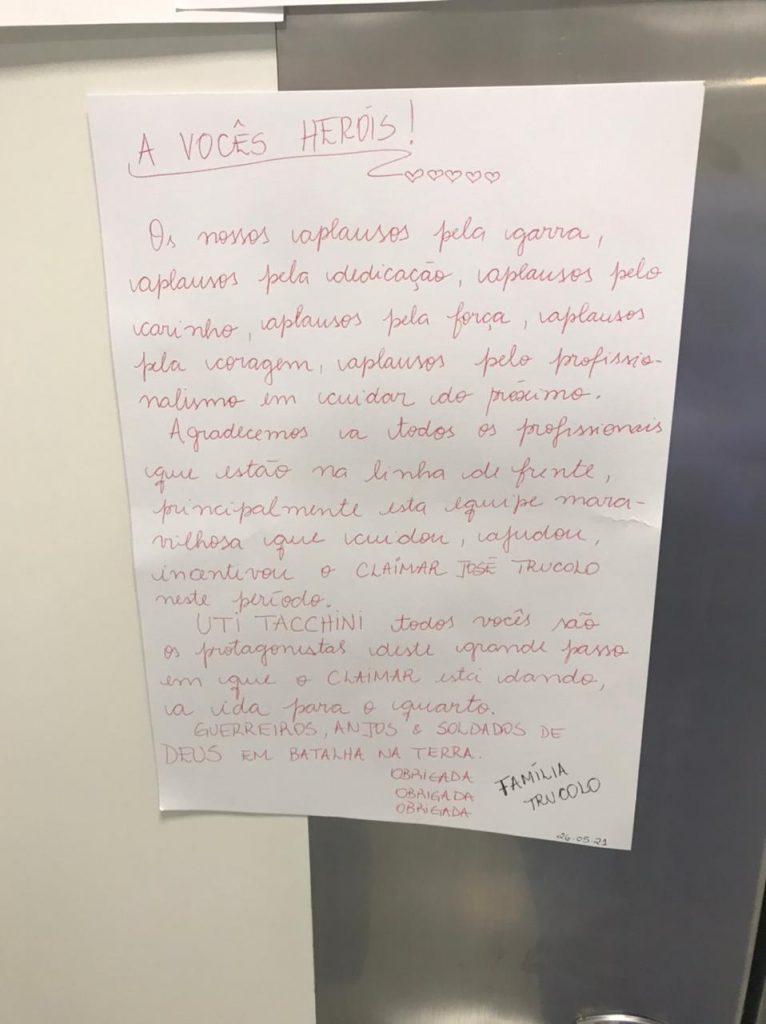 A VOCÊS HERÓIS!
Os nossos aplausos pela garra,
aplausos pela dedicação, aplausos pelo
carinho, aplausos pela força, aplausos
pela coragem, aplausos pelo profissio-
nalismo em cuidar do próximo.
Agradecemos a todos os profissionais
que estão na linha de frente,
principalmente esta equipe mara-
vilhosa que cuidou, ajudou,
incentivou o CLAÍMAR JOSÉ TRUCOLO
neste período.
UTI TACCHINI todos vocês são
os protagonistas deste grande passo
em que o CLAÍMAR está dando,
a ida para o quarto.
GUERREIROS, ANJOS & SOLDADOS DE
DEUS EM BATALHA NA TERRA.
OBRIGADA
OBRIGADA
OBRIGADA
FAMÍLIA
TRUCOLO
26.05.21